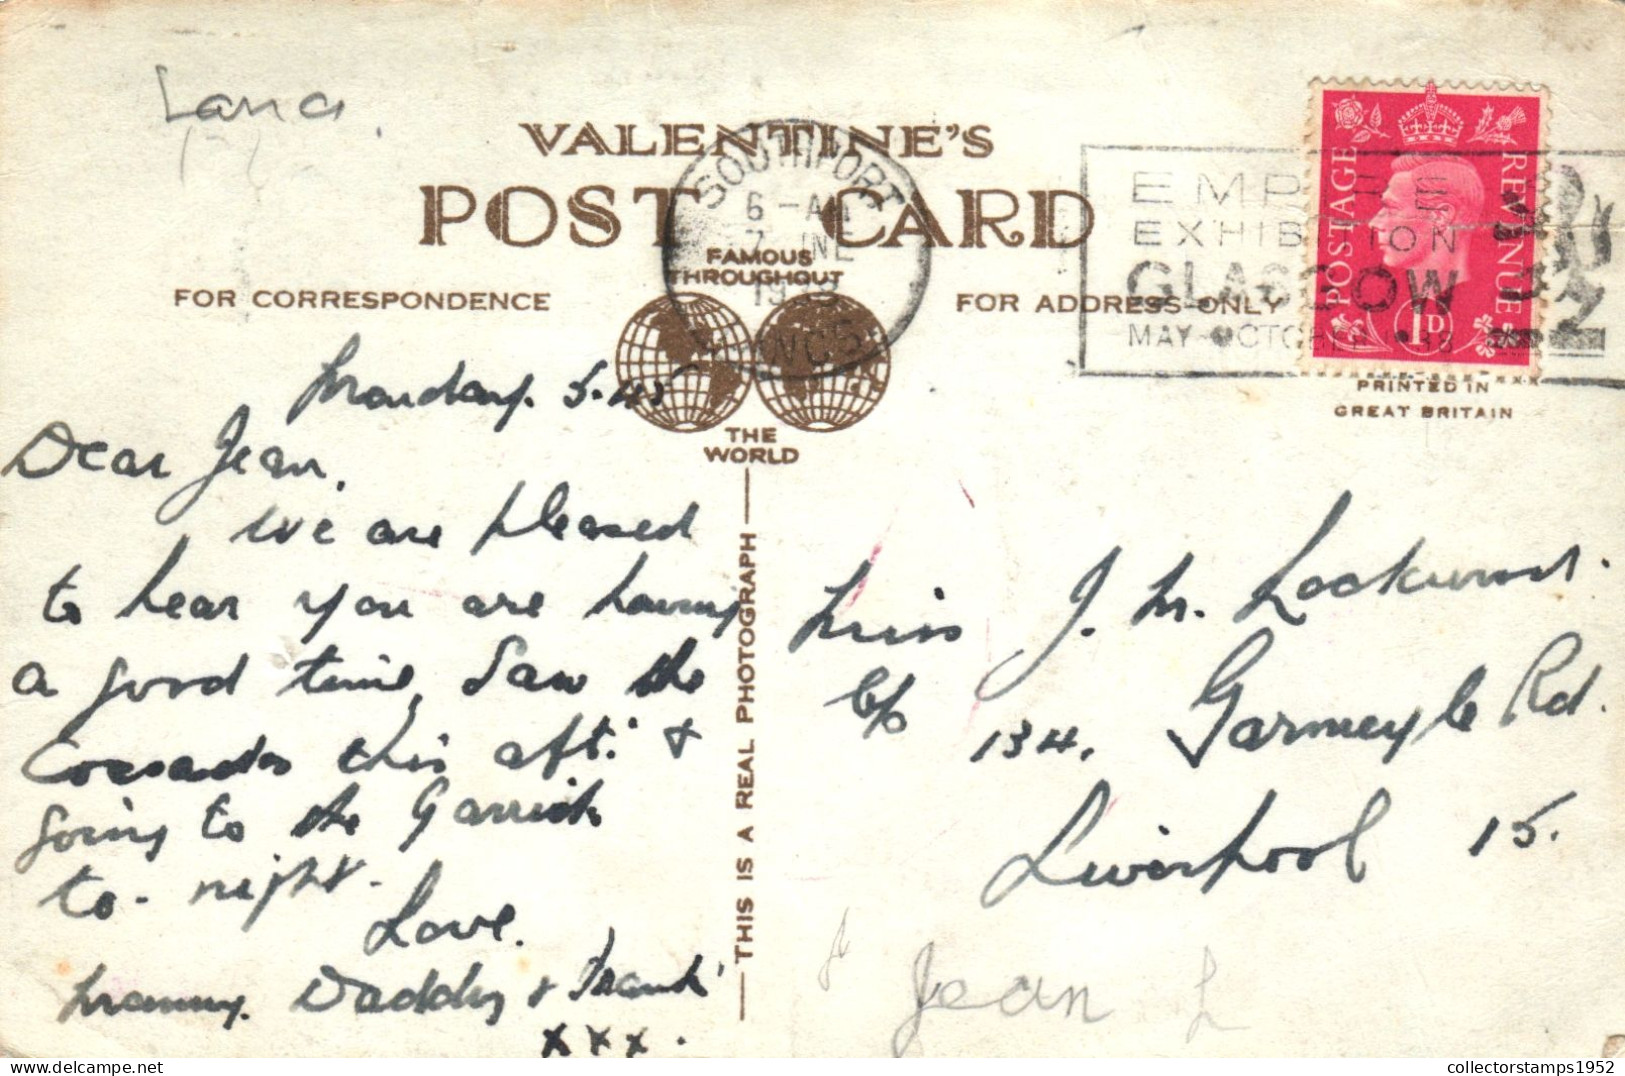 Lancs.
VALENTINE'S
POST CARD
FAMOUS
THROUGHOUT
THE
WORLD
FOR CORRESPONDENCE
FOR ADDRESS ONLY
SOUTHPORT
6 - AM
7 JNE
19
LANCS
EMPIRE
EXHIBITION
GLASGOW
MAY - OCTOBER 1938
POSTAGE REVENUE
1D
PRINTED IN
GREAT BRITAIN
THIS IS A REAL PHOTOGRAPH
Monday. 5.45
Dear Jean,
We are pleased
to hear you are having
a good time, Saw the
Cossacks this aft: &
going to the Garrick
to-night.
Love.
Mammy. Daddy & Frank
xxx.
Miss J. M. Lockwood.
c/o 134, Garmoyle Rd.
Liverpool 15.
Jean L
collectorstamps1952